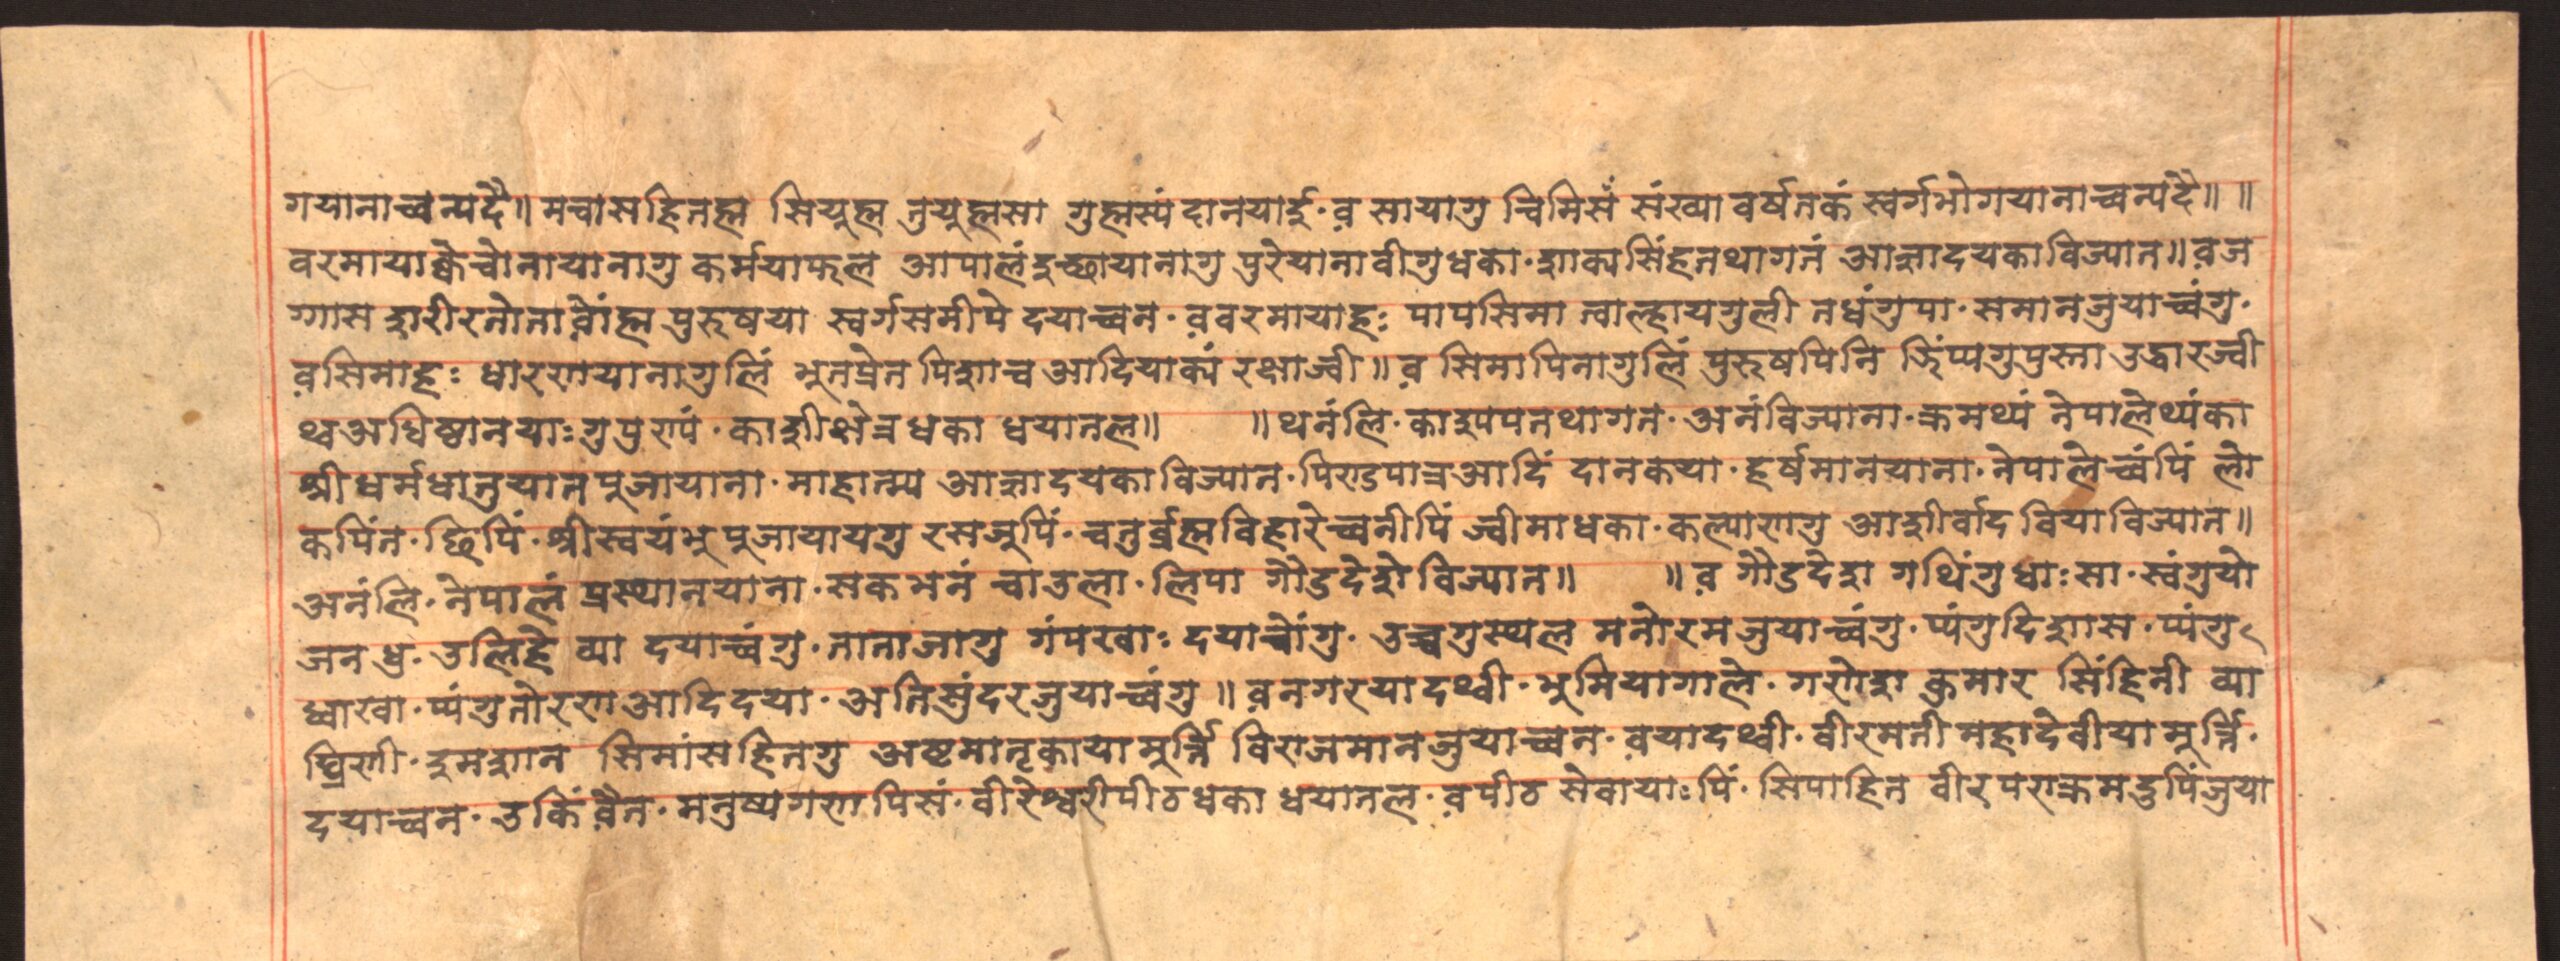 गयानाच्वन्यदै॥ मचासहितह्म सियुह्म नुयुह्मसा गुह्मस्यं दानयाई· व सायागु चिमिसँ संख्या वर्षतकं स्वर्गभोगयानाच्वन्यदै॥ ॥
वरमायाक्वेचोनायानागु कर्मयाफल आपालंदुच्छायानागु पुरेयानावीगुधका· शाक्यसिंहतथागतं आज्ञादयकाविज्यात॥ वज
ग्गास शरीरतोतावोंह्म पुरूषया स्वर्गसमीपे दयाच्वन· ववरमायाहः पापसिमा त्वाल्हायगुली तधंगुपा· समानजुयाच्वंगु·
वसिमाहः धारणायानागुलिं भुतप्रेत पिशाच आदियाक्यं रक्षाज्वी॥ व सिमापिनागुलिं पुरूषपिनि ञिंप्यगुपुस्ता उद्धारज्वी
थ्वअधिष्ठानयाःगुपुराणं· काशीक्षेत्रधका धयातल॥ ॥ थनंलि· काश्यपतथागत· अनंविज्याना· क्रमथ्यं नेपालेथ्यंका
श्रीधर्मधातुयातपुजायाना· माहात्म्य आज्ञादयकाविज्यात· पिण्डपात्रआदिं दानकया· हर्षमानयाना· नेपालेच्वंपिं लो
कपिंत· छिपिं· श्रीस्वयंभुपुजायायगु रसजुपिं· चतुर्ब्रह्मविहारेच्वनीपिं ज्वीमाधका· कल्याणगु आशीर्वाद वियाविज्यात॥
अनंलि· नेपालं प्रस्थानयाना· सकभनं चाउला· लिपा गौडदेशे विज्यात॥ ॥ व गौडदेश गथिंगुधाःसा· स्वंगुयो
जनध्व· उलिहे व्या दयाच्वंगु· नानाजागु गंपखाः दयाचोंगु· उच्चगुस्थल मनोरमजुयाच्वंगु· प्यंगुदिशास· प्यंगु
ध्वाखा· प्यंगुतोरणआदिदया· अतिसुंदरजुयाच्वंगु॥ वनगरयादथ्वी· भुमियागाले· गणेश कुमार सिंहिनी व्या
घ्रिणी· श्मशान सिमांसहितगु अष्टमातृकायामुर्त्ति विराजमानजुयाच्वन· वयादथ्वी· वीरमती महादेवीया मुर्त्ति·
दयाच्वन· उकिं वैत· मनुष्यगणपिसं· वीरेश्वरीपीठधका धयातल· वपीठ सेवायाःपिं· सिपाहित वीरपराक्रमदुपिंजुया